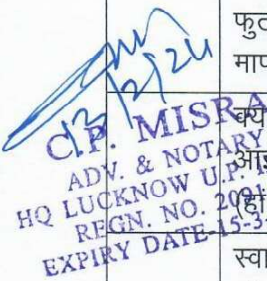 फुट
माप
13/2/24
C.P. MISRA
ADV. & NOTARY
HQ LUCKNOW U.P.
REGN. NO.
EXPIRY DATE 15-3-
स्वा